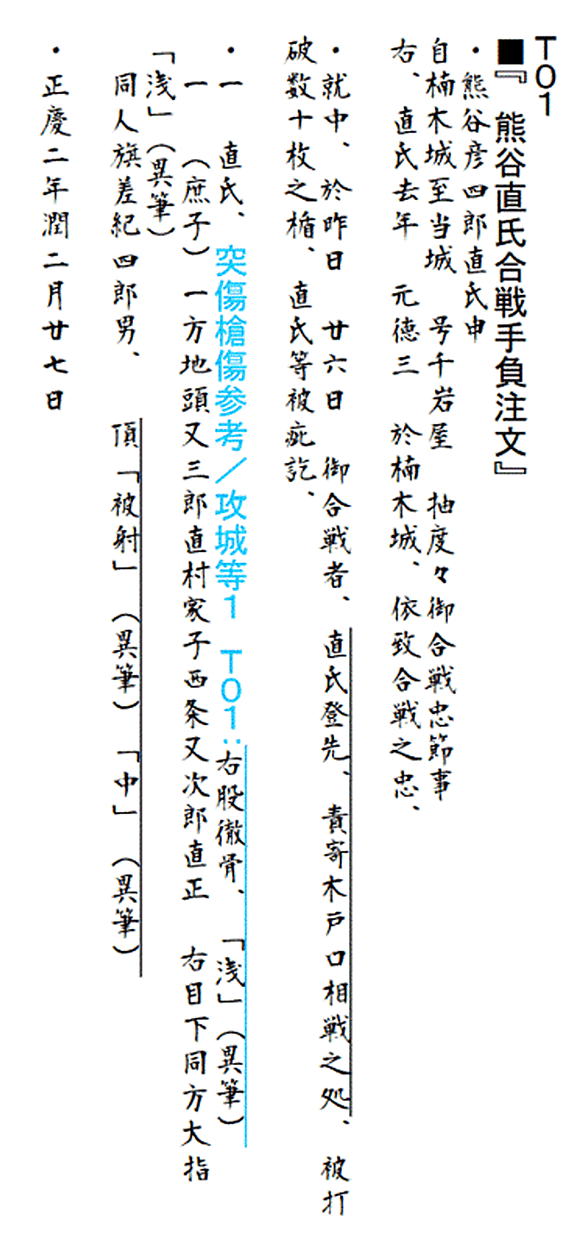 T01
■『 熊谷直氏合戦手負注文』
・熊谷彦四郎直氏申
自楠木城至当城 号千岩屋 抽度々御合戦忠節事
右、直氏去年 元徳三 於楠木城、依致合戦之忠、
・就中、於昨日 廿六日 御合戦者、直氏登先、責寄木戸口相戦之処、被打
破数十枚之楯、直氏等被疵訖、
・一 直氏、突傷槍傷参考／攻城等1 T01:右股徹骨、「浅」（異筆）
・一 （庶子）一方地頭又三郎直村家子西条又次郎直正 右目下同方大指
「浅」（異筆）
同人旗差紀四郎男、 頂「被射」（異筆）「中」（異筆）
・正慶二年潤二月廿七日